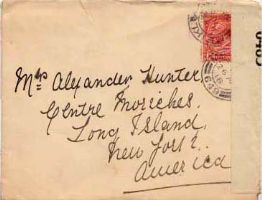 Mrs Alexander Hunter
Centre Moriches.
Long Island,
New York.
America